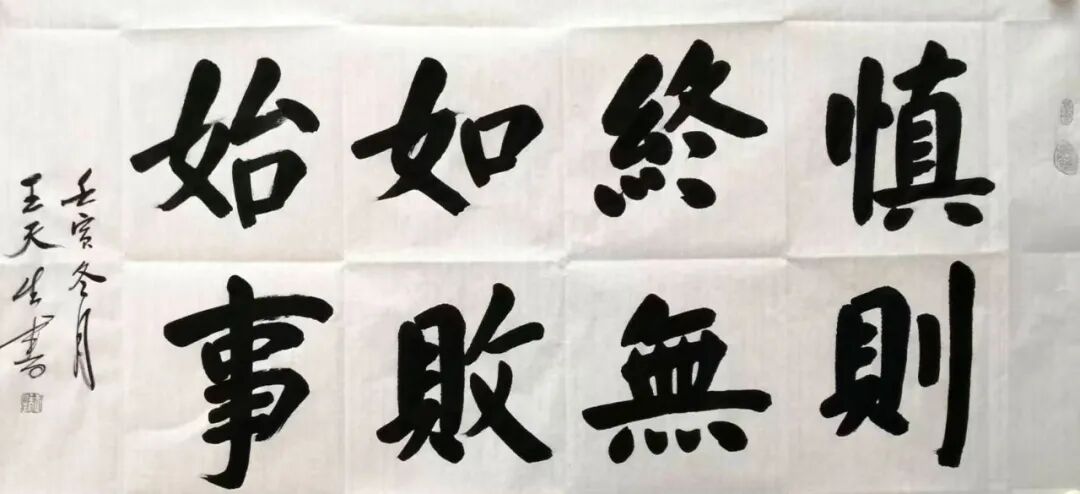 慎終如始
則無敗事
壬寅冬月
王天生書